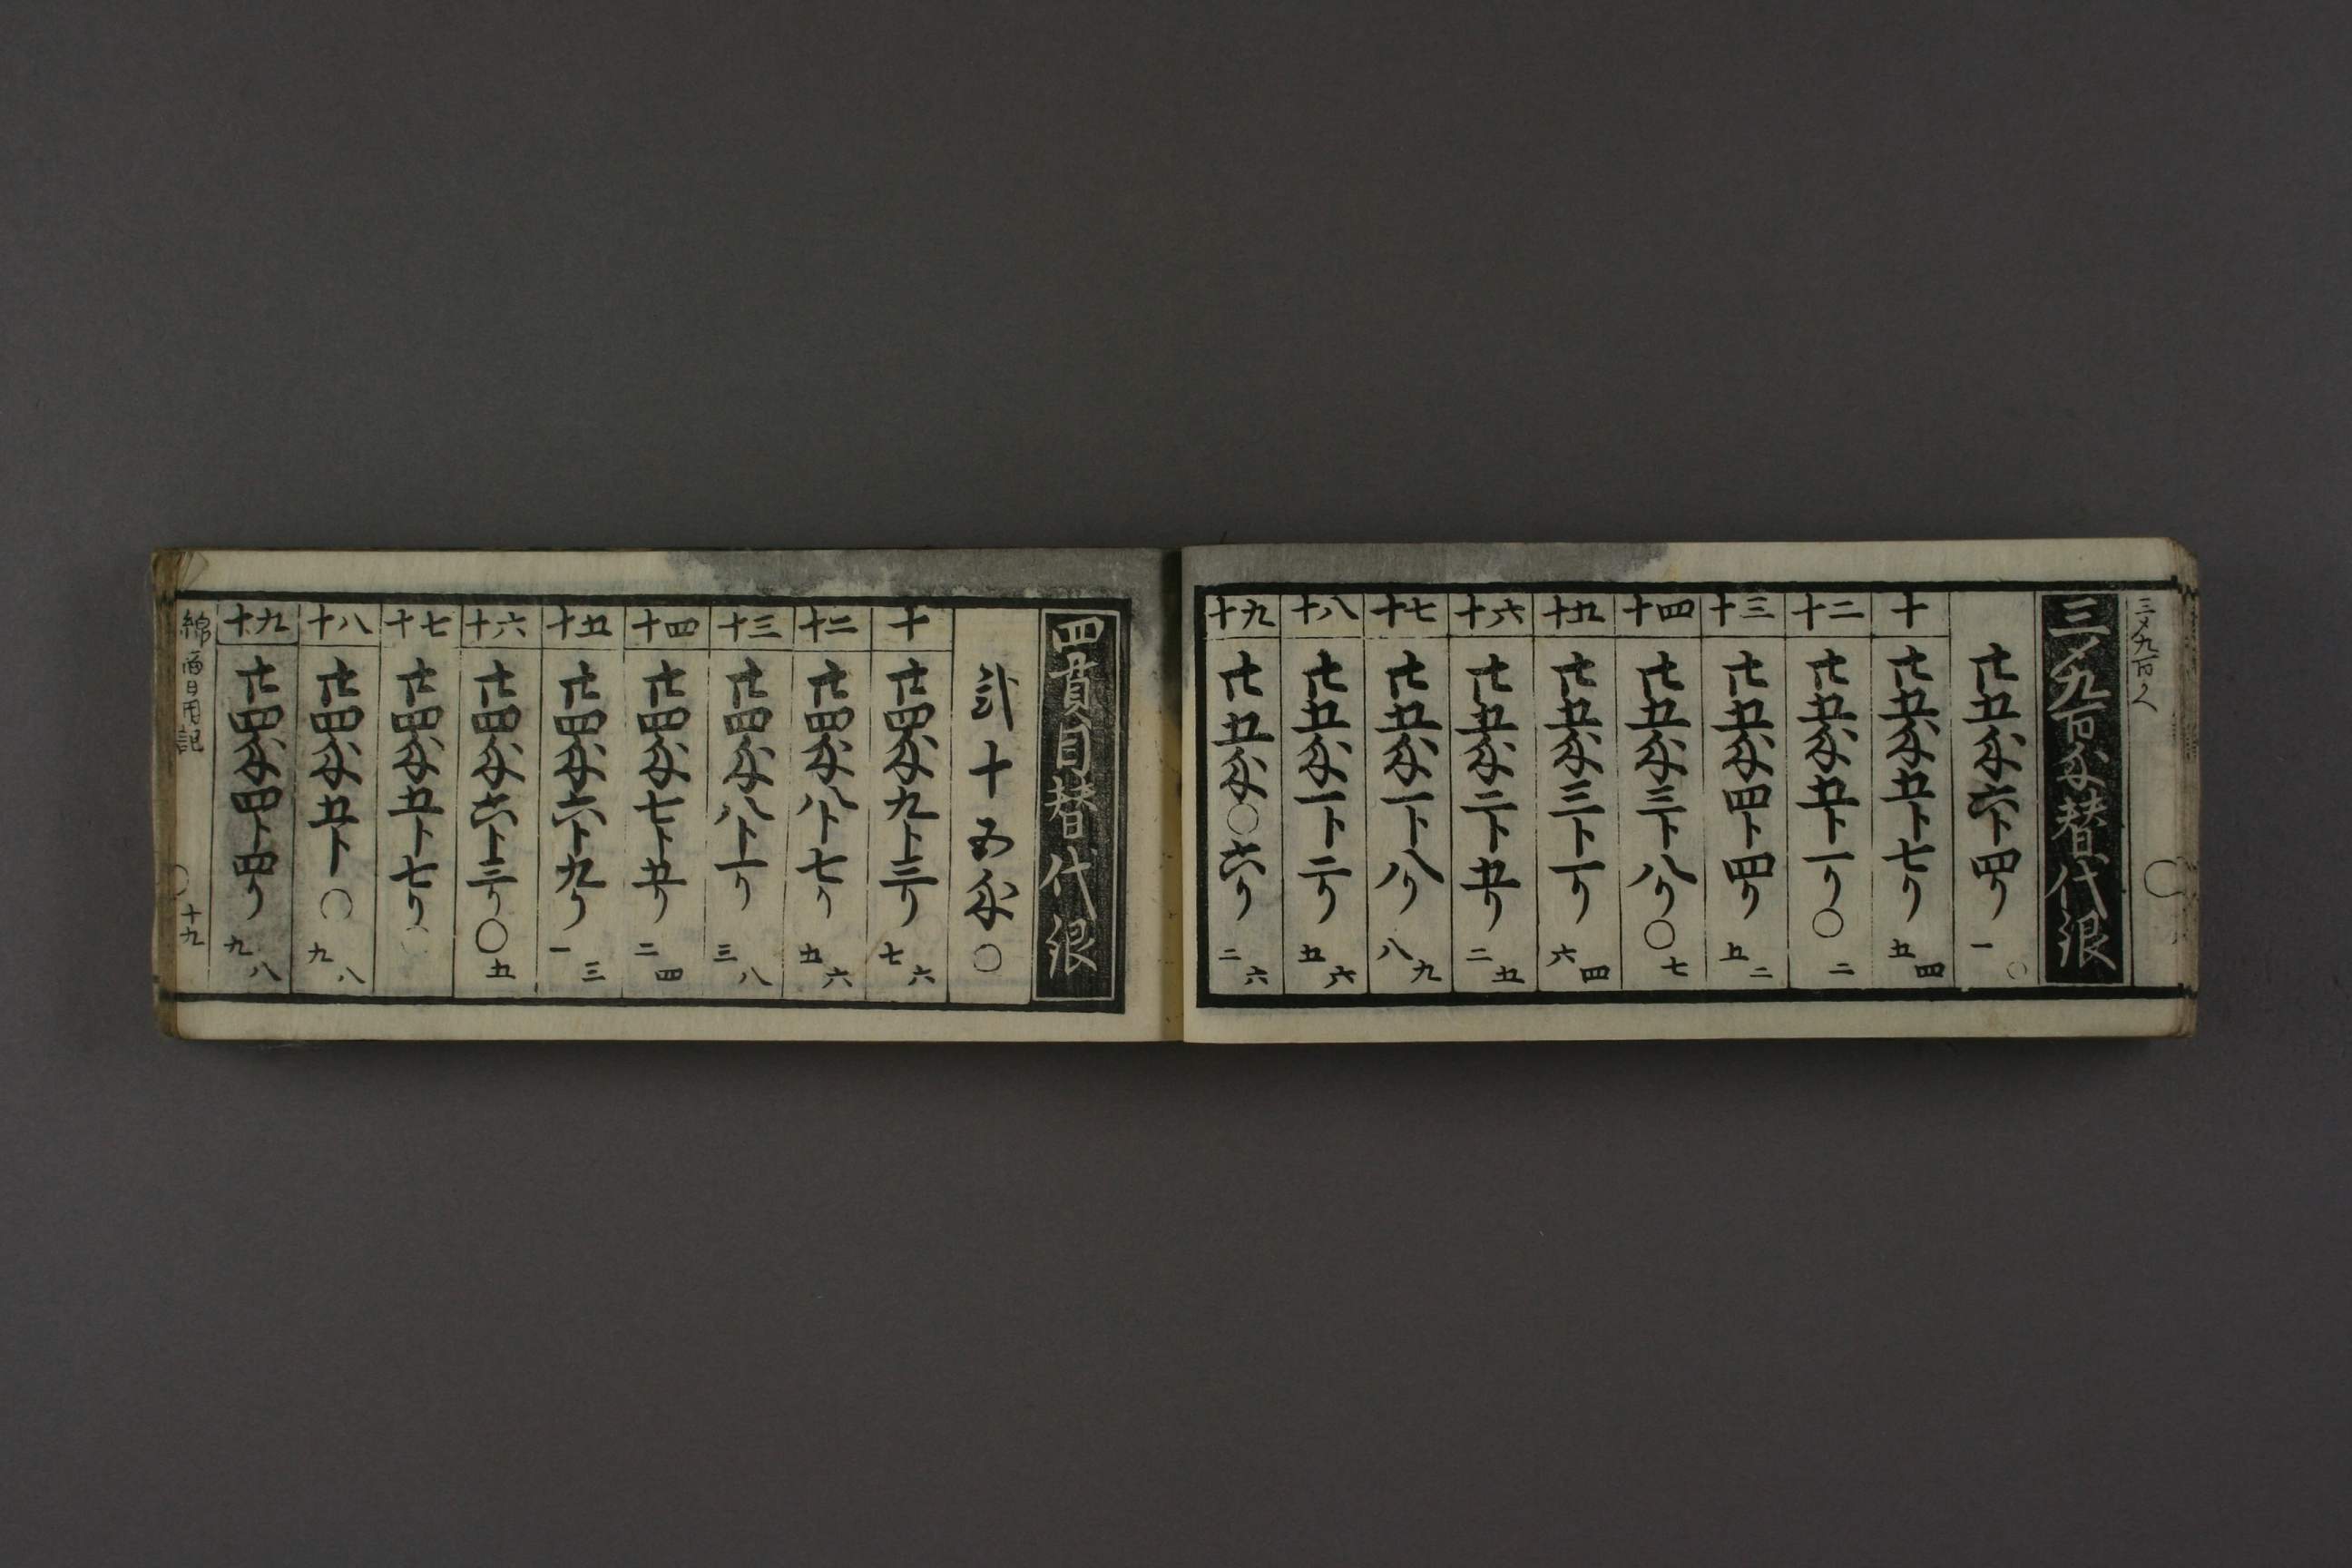 三〆九百匁
三〆九百匁替代銀
廿五匁六卜四リ一〇
十 廿五匁五卜七リ五四
二十 廿五匁五卜一リ〇二
三十 廿五匁四卜四リ五二
四十 廿五匁三卜八リ〇七
五十 廿五匁三卜一リ六四
六十 廿五匁二卜五リ二五
七十 廿五匁一卜八リ八九
八十 廿五匁一卜二リ五六
九十 廿五匁〇六リ二六
四貫目替代銀
弐十五匁〇
十 廿四匁九卜三リ七六
二十 廿四匁八卜七リ五六
三十 廿四匁八卜一リ三八
四十 廿四匁七卜五リ二四
五十 廿四匁六卜九リ一三
六十 廿四匁六卜三リ〇五
七十 廿四匁五卜七リ〇
八十 廿四匁五卜〇九八
九十 廿四匁四卜四リ九八
綿商日用記 〇十九